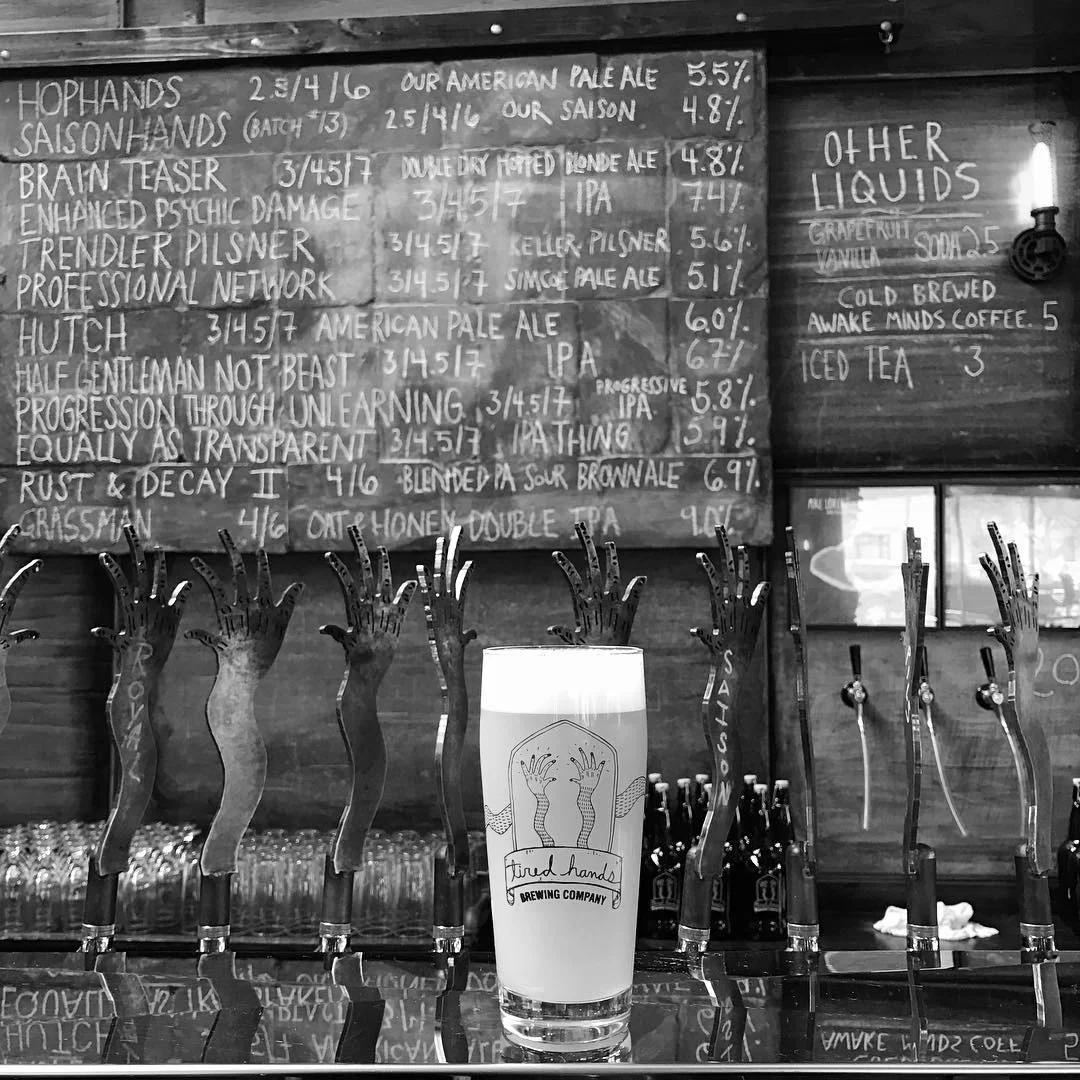 HOPHANDS 2.5/4/6 OUR AMERICAN PALE ALE 5.5%
SAISONHANDS (BATCH #13) 2.5/4/6 OUR SAISON 4.8%
BRAIN TEASER 3/4.5/7 DOUBLE DRY HOPPED BLONDE ALE 4.8%
ENHANCED PSYCHIC DAMAGE 3/4.5/7 IPA 7.4%
TRENDLER PILSNER 3/4.5/7 KELLER PILSNER 5.6%
PROFESSIONAL NETWORK 3/4.5/7 SIMCOE PALE ALE 5.1%
HUTCH 3/4.5/7 AMERICAN PALE ALE 6.0%
HALF GENTLEMAN NOT BEAST 3/4.5/7 IPA 6.7%
PROGRESSION THROUGH UNLEARNING 3/4.5/7 PROGRESSIVE IPA 5.8%
EQUALLY AS TRANSPARENT 3/4.5/7 IPA THING 5.9%
RUST & DECAY II 4/6 BLENDED PA SOUR BROWN ALE 6.9%
GRASSMAN 4/6 OAT & HONEY DOUBLE IPA 9.0%
OTHER
LIQUIDS
GRAPEFRUIT
VANILLA SODA 2.5
COLD BREWED
AWAKE MINDS COFFEE. 5
ICED TEA 3
SAISON
tired hands
BREWING COMPANY